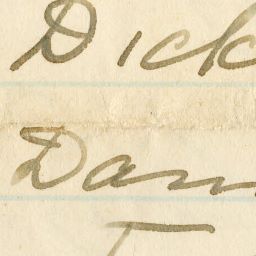 Dick
Dan